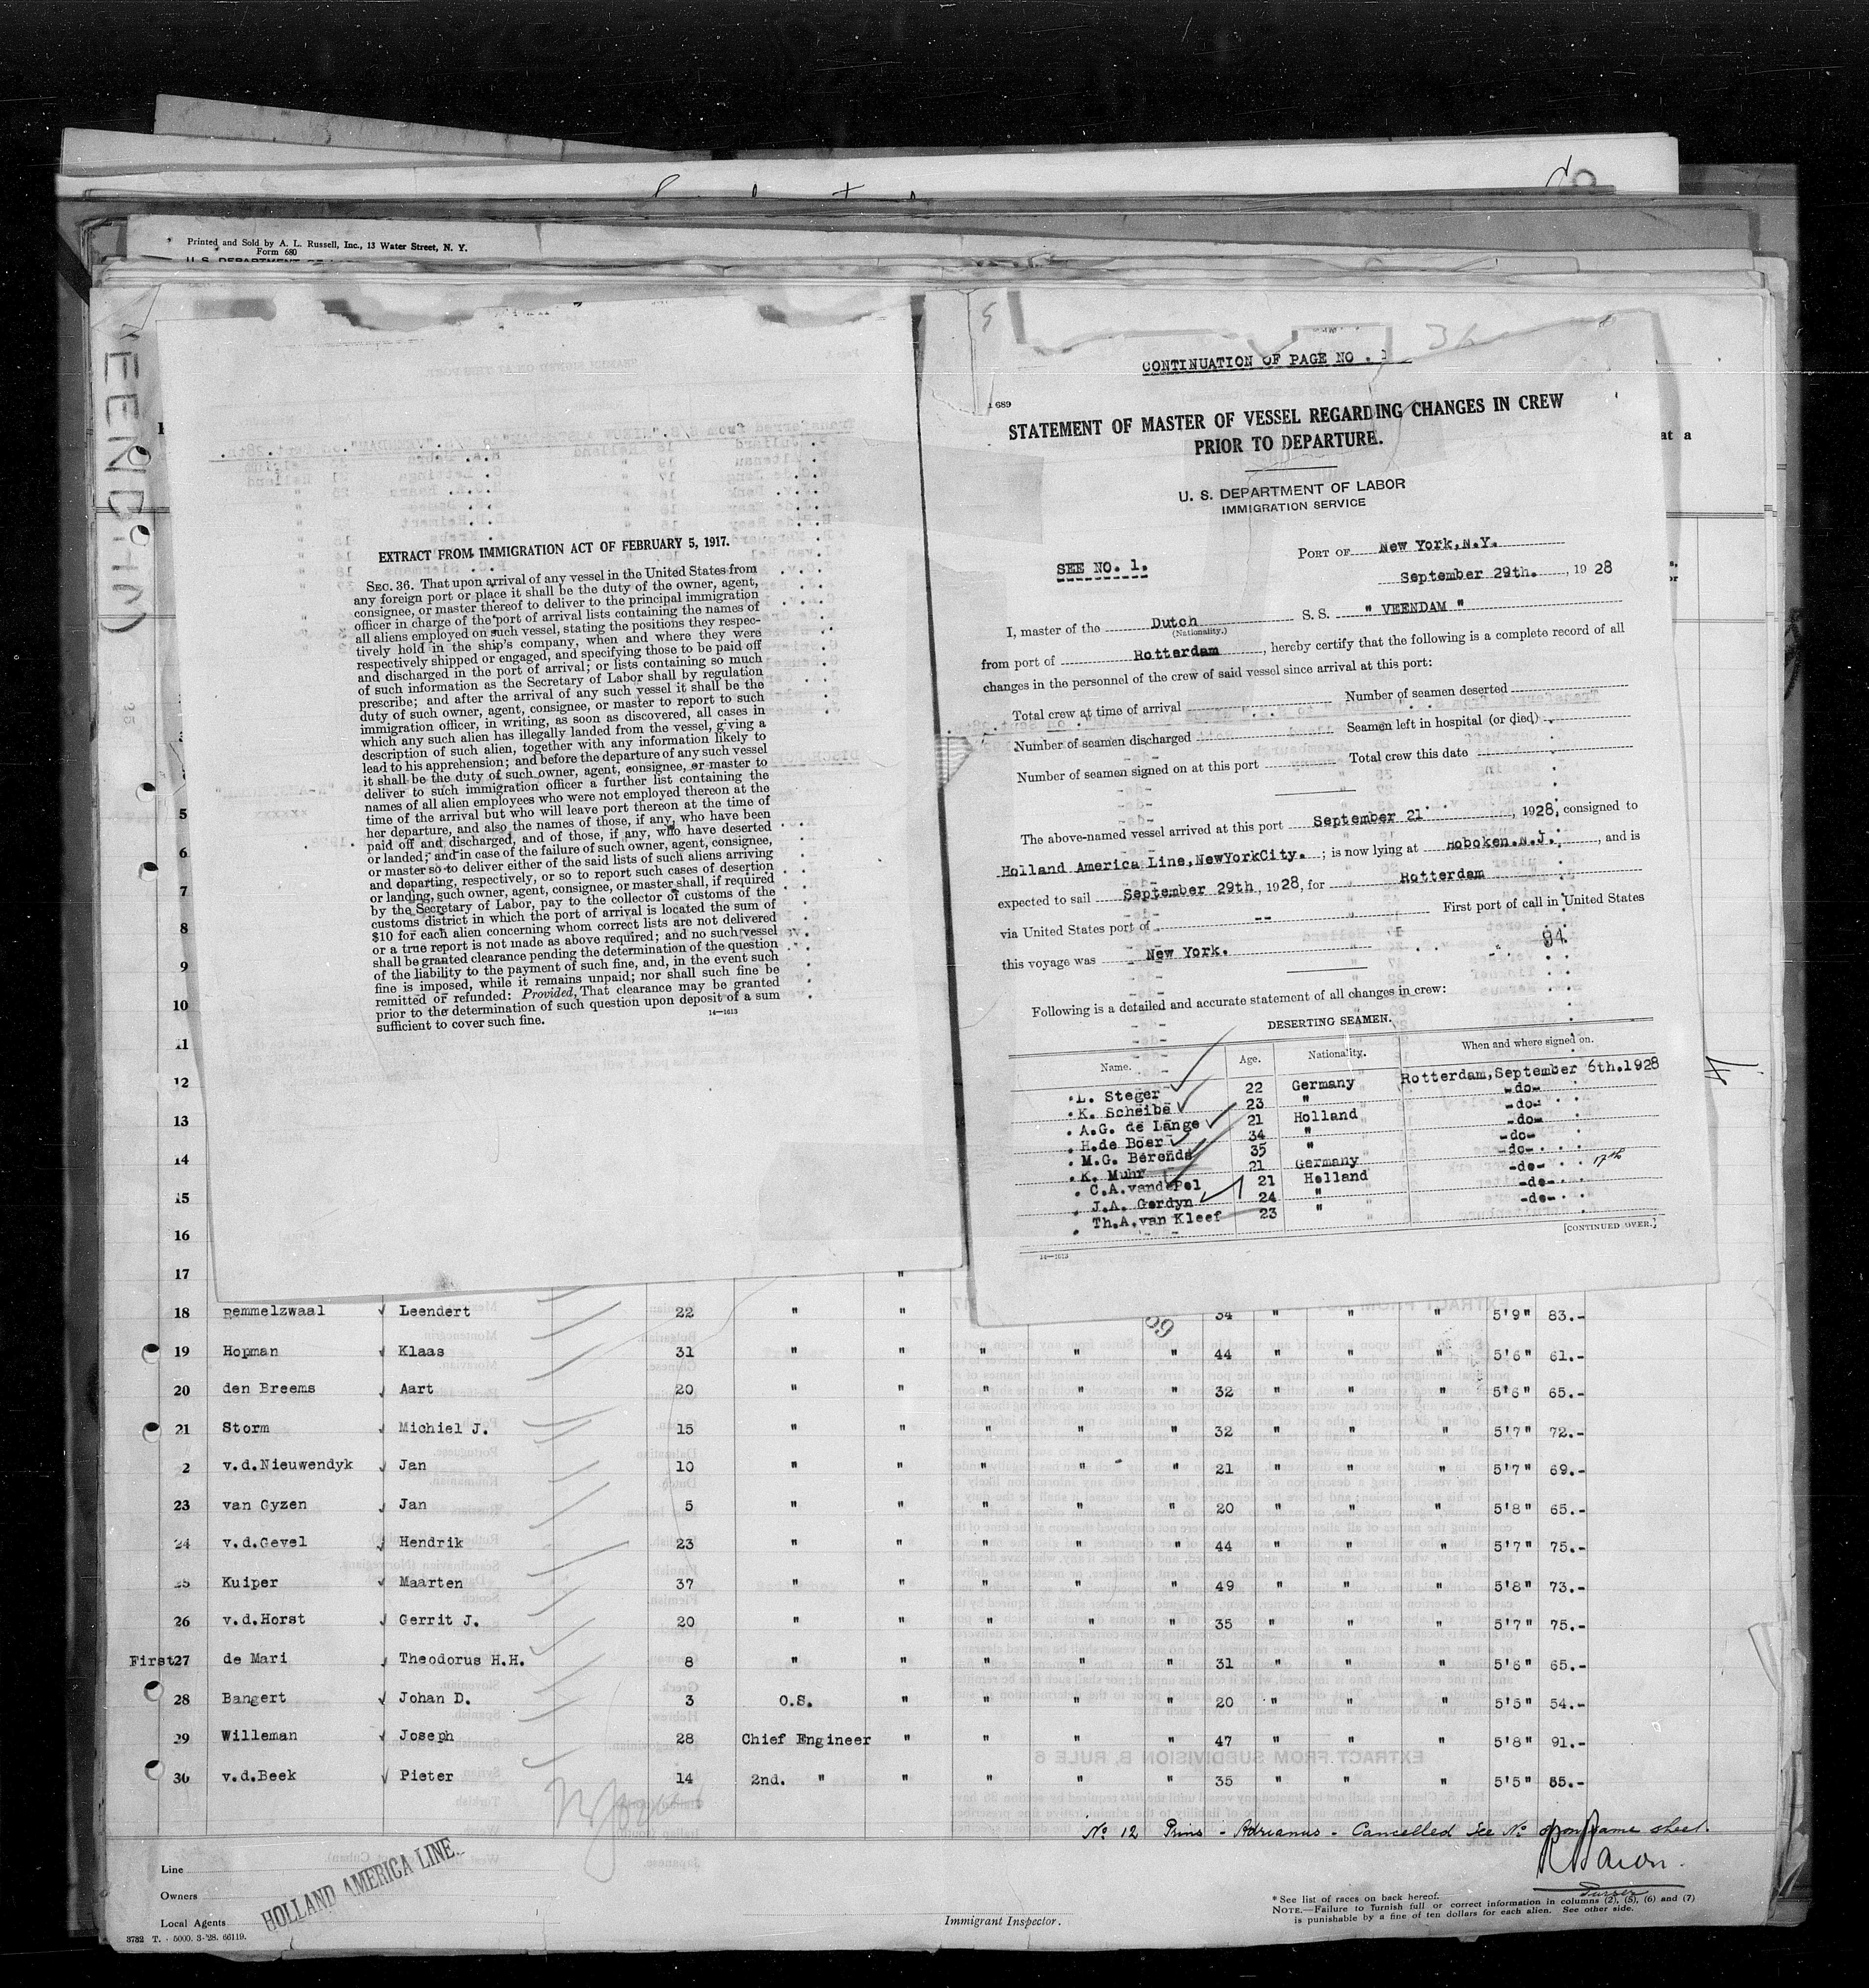 Printed and Sold by A. L. Russell, Inc., 13 Water Street, N. Y.
Form 680
EXTRACT FROM IMMIGRATION ACT OF FEBRUARY 5, 1917.
SEC. 36. That upon arrival of any vessel in the United States from
any foreign port or place it shall be the duty of the owner, agent,
consignee, or master thereof to deliver to the principal immigration
officer in charge of the port of arrival lists containing the names of
all aliens employed on such vessel, stating the positions they respec-
tively hold in the ship's company, when and where they were
respectively shipped or engaged, and specifying those to be paid off
and discharged in the port of arrival; or lists containing so much
of such information as the Secretary of Labor shall by regulation
prescribe; and after the arrival of any such vessel it shall be the
duty of such owner, agent, consignee, or master to report to such
immigration officer, in writing, as soon as discovered, all cases in
which any such alien has illegally landed from the vessel, giving a
description of such alien, together with any information likely to
lead to his apprehension; and before the departure of any such vessel
it shall be the duty of such owner, agent, consignee, or master to
deliver to such immigration officer a further list containing the
names of all alien employees who were not employed thereon at the
time of the arrival but who will leave port thereon at the time of
her departure, and also the names of those, if any, who have been
paid off and discharged, and of those, if any, who have deserted
or landed; and in case of the failure of such owner, agent, consignee,
or master so to deliver either of the said lists of such aliens arriving
and departing, respectively, or so to report such cases of desertion
or landing, such owner, agent, consignee, or master shall, if required
by the Secretary of Labor, pay to the collector of customs of the
customs district in which the port of arrival is located the sum of
$10 for each alien concerning whom correct lists are not delivered
or a true report is not made as above required; and no such vessel
shall be granted clearance pending the determination of the question
of the liability to the payment of such fine, and, in the event such
fine is imposed, while it remains unpaid; nor shall such fine be
remitted or refunded: Provided, That clearance may be granted
prior to the determination of such question upon deposit of a sum
sufficient to cover such fine.
14—1613
CONTINUATION OF PAGE NO.
689
STATEMENT OF MASTER OF VESSEL REGARDING CHANGES IN CREW
PRIOR TO DEPARTURE.
U. S. DEPARTMENT OF LABOR
IMMIGRATION SERVICE
PORT OF New York,N.Y.
SEE NO. 1.
September 29th. , 1928
I, master of the Dutch S. S. " VEENDAM "
(Nationality.)
from port of Rotterdam , hereby certify that the following is a complete record of all
changes in the personnel of the crew of said vessel since arrival at this port:
Total crew at time of arrival Number of seamen deserted
Number of seamen discharged Seamen left in hospital (or died)
Number of seamen signed on at this port Total crew this date
The above-named vessel arrived at this port September 21 , 1928, consigned to
Holland America Line,NewYorkCity. ; is now lying at Hoboken.N.J. , and is
expected to sail September 29th , 1928, for Rotterdam
via United States port of -- First port of call in United States
this voyage was New York.
94
Following is a detailed and accurate statement of all changes in crew:
DESERTING SEAMEN.
Name. Age. Nationality. When and where signed on.
L. Steger 22 Germany Rotterdam,September 6th.1928
K. Scheibe 23 " -do-
A.G. de Lange 21 Holland -do-
H.de Boer 34 " -do-
M.G. Berends 35 " -do-
K. Muhr 21 Germany -do-
C.A.vandePol 21 Holland -do- 17th
J.A. Gordyn 24 " -do-
Th.A.van Kleef 23 " -do-
[CONTINUED OVER.]
14—1613
5
6
7
8
9
10
11
12
13
14
15
16
17 "
18 Remmelzwaal Leendert 22 " " 34 " " " 5'9" 83.-
19 Hopman Klaas 31 " " " " " 44 " " " 5'6" 61.-
20 den Breems Aart 20 " " " " " 32 " " " 5'6" 65.-
21 Storm Michiel J. 15 " " " " " 32 " " " 5'7" 72.-
2 v.d.Nieuwendyk Jan 10 " " " " " 21 " " " 5'7" 69.-
23 van Gyzen Jan 5 " " " " " 20 " " " 5'8" 65.-
24 v.d.Gevel Hendrik 23 " " " " " 44 " " " 5'7" 75.-
25 Kuiper Maarten 37 " " " " " 49 " " " 5'8" 73.-
26 v.d.Horst Gerrit J. 20 " " " " " 35 " " " 5'7" 75.-
First 27 de Mari Theodorus H.H. 8 " " " " " 31 " " " 5'6" 65.-
28 Bangert Johan D. 3 O.S. " " " " 20 " " " 5'5" 54.-
29 Willeman Joseph 28 Chief Engineer " " " " 47 " " " 5'8" 91.-
30 v.d.Beek Pieter 14 2nd. " " " " " 35 " " " 5'5" 85.-
No 12 Prins - Adrianus - Cancelled See No on same sheet.
Purser
Line
Owners
Local Agents
HOLLAND AMERICA LINE.
Immigrant Inspector.
* See list of races on back hereof.
NOTE.—Failure to furnish full or correct information in columns (2), (5), (6) and (7)
is punishable by a fine of ten dollars for each alien. See other side.
3782 T. 5000. 3-'28. 66119.